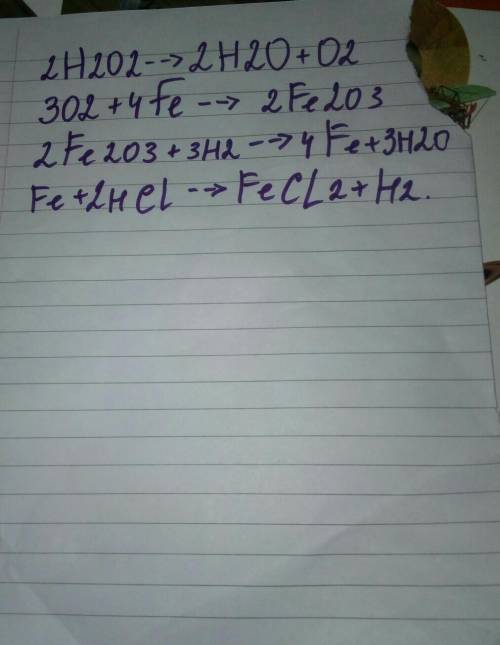 2H2O2 --> 2H2O + O2
3O2 + 4Fe --> 2Fe2O3
2Fe2O3 + 3H2 --> 4Fe + 3H2O
Fe + 2HCl --> FeCL2 + H2.